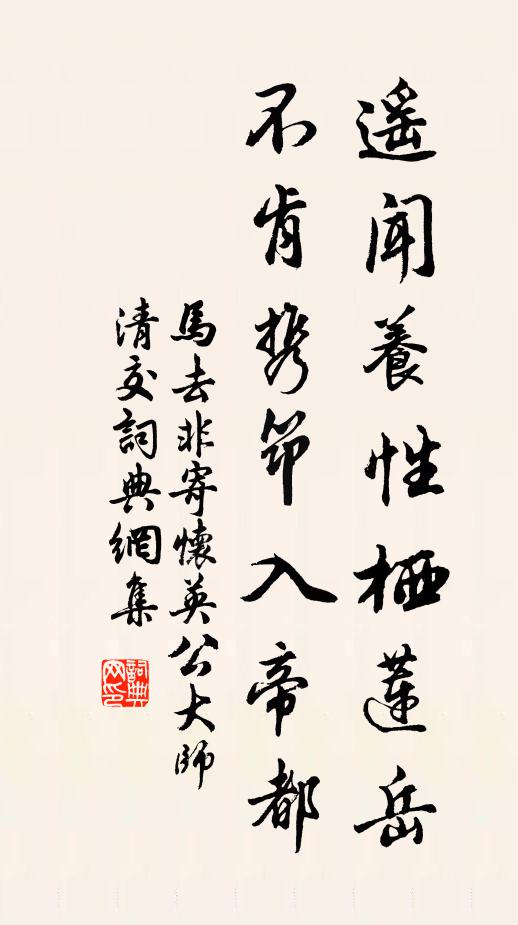 遥聞養性栖蓮岳
不肯携筇入帝都
馬去非寄懷英公大師
清交詞典網集
詞典网印